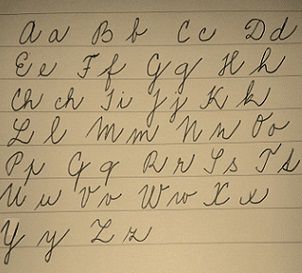 A a B b C c D d
E e F f G g H h
Ch ch I i J j K k
L l M m N n O o
P p Q q R r S s T t
U u V v W w X x
Y y Z z